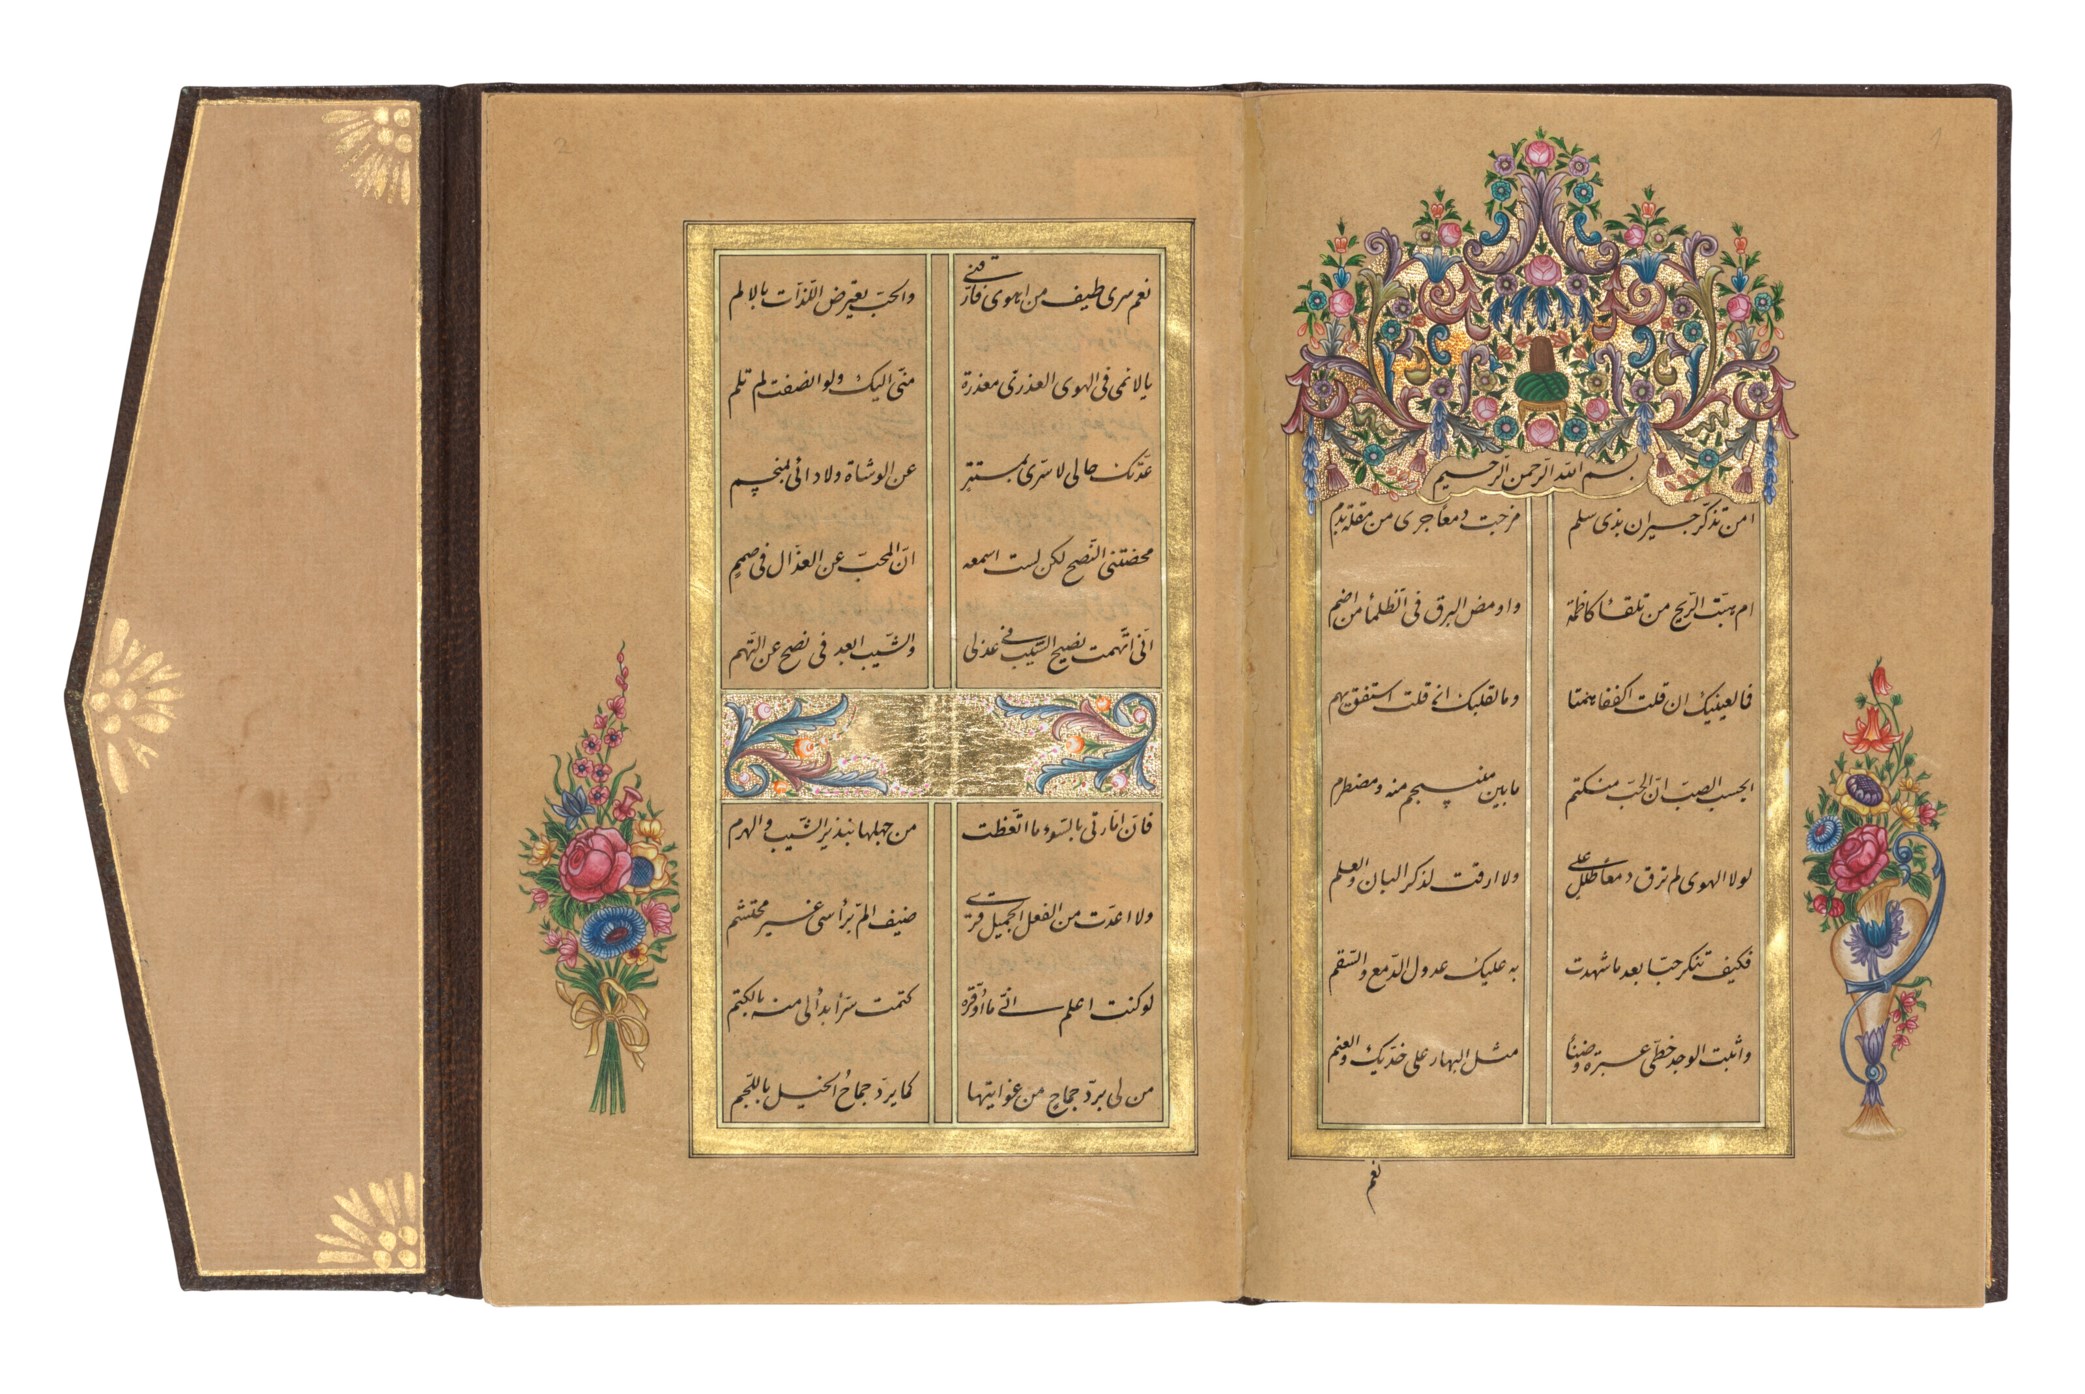 بسم الله الرحمن الرحيم
امن تذكّر جيران بذى سلم مزجت دمعاً جرى من مقلة بدم
ام هبّت الرّيح من تلقاء كاظمة واومض البرق فى الظلماء من اضم
فما لعينيك ان قلت اكففا همتا وما لقلبك ان قلت استفق يهم
ايحسب الصبّ انّ الحبّ منكتم ما بين منسجم منه ومضطرم
لولا الهوى لم ترق دمعاً على طلل ولا ارقت لذكر البان والعلم
فكيف تنكر حبّا بعد ما شهدت به عليك عدول الدّمع والسّقم
واثبت الوجد خطّى عبرة وضنىً مثل البهار على خدّيك والعنم
نعم
نعم سرى طيف من اهوى فارّقنى والحبّ يعترض اللّذّات بالالم
يا لائمى فى الهوى العذرىّ معذرة منّى اليك ولو انصفت لم تلم
عدتك حالى لا سرّى بمستتر عن الوشاة ولا دائى بمنحسم
محضتنى النّصح لكن لست اسمعه انّ المحبّ عن العذّال فى صمم
انّى اتّهمت نصيح الشّيب فى عذلى والشّيب ابعد فى نصح عن التّهم
فانّ امّارتى بالسّوء ما اتّعظت من جهلها بنذير الشّيب والهرم
ولا اعدّت من الفعل الجميل قرى ضيف المّ برأسى غير محتشم
لو كنت اعلم انّى ما اوقّره كتمت سرّاً بدا لى منه بالكتم
من لى بردّ جماح من غوايتها كما يردّ جماح الخيل باللّجم